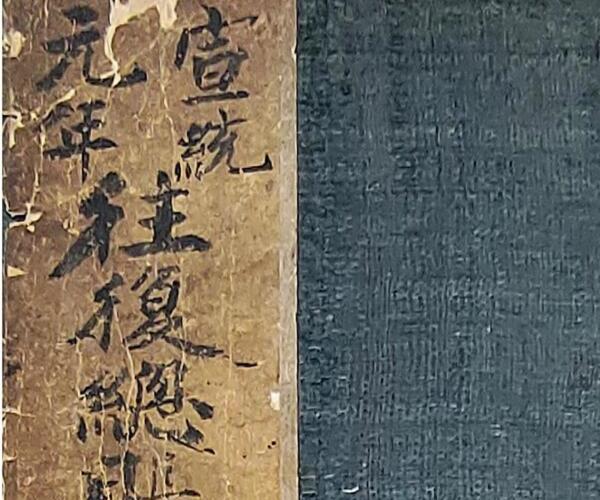 宣統
元年
往復總